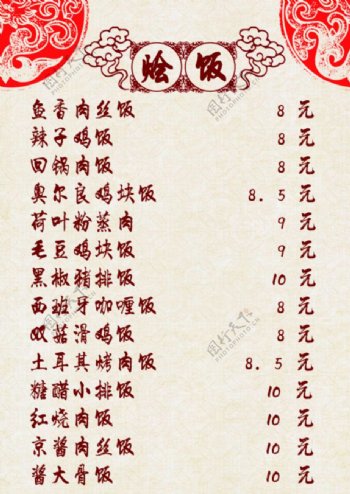 烩饭
鱼香肉丝饭 8元
辣子鸡饭 8元
回锅肉饭 8元
奥尔良鸡块饭 8.5元
荷叶粉蒸肉 9元
毛豆鸡块饭 9元
黑椒猪排饭 10元
西班牙咖喱饭 8元
双菇滑鸡饭 8元
土耳其烤肉饭 8.5元
糖醋小排饭 10元
红烧肉饭 10元
京酱肉丝饭 10元
酱大骨饭 10元